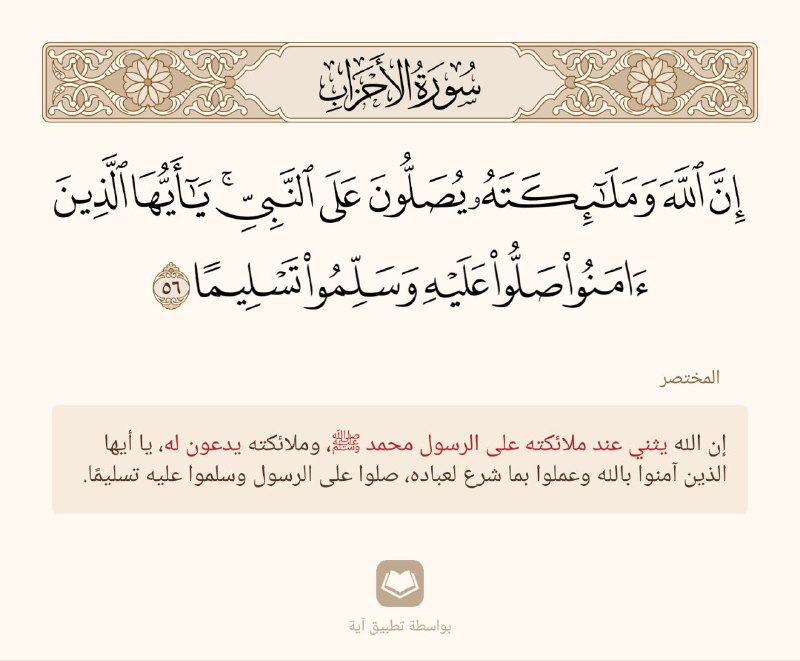 سُورَةُ الأَحْزَابِ
إِنَّ ٱللَّهَ وَمَلَـٰٓئِكَتَهُۥ يُصَلُّونَ عَلَى ٱلنَّبِىِّ ۚ يَـٰٓأَيُّهَا ٱلَّذِينَ
ءَامَنُوا۟ صَلُّوا۟ عَلَيْهِ وَسَلِّمُوا۟ تَسْلِيمًا ٥٦
المختصر
إن الله يثني عند ملائكته على الرسول محمد ﷺ، وملائكته يدعون له، يا أيها
الذين آمنوا بالله وعملوا بما شرع لعباده، صلوا على الرسول وسلموا عليه تسليمًا.
بواسطة تطبيق آية